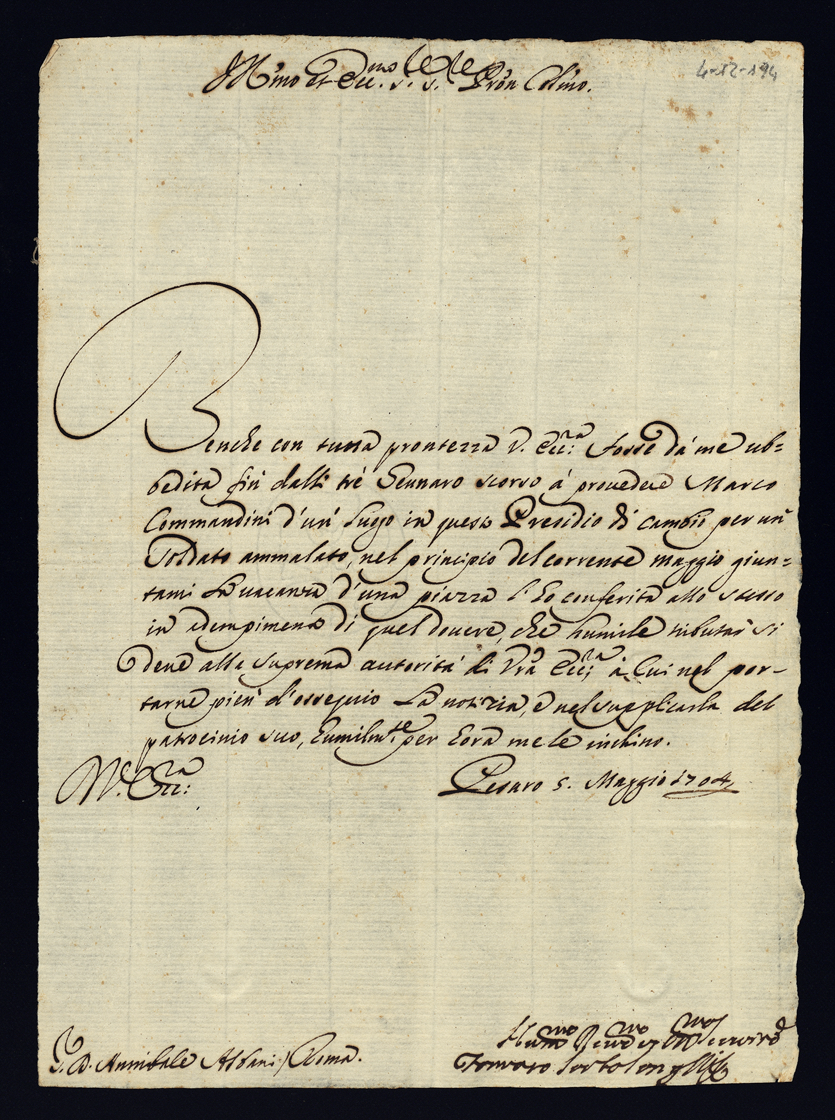 Ill.mo et Ecc.mo S.re S.re Pron Col.mo.
4-12-194
Benche con tutta prontezza V. Ecc:za fosse dà me ub=
bedita fin' dalli tré Gennaro scorso à provedere Marco
Commandini d'un' luogo in questo Presidio di cambio per un'
soldato ammalato, nel principio del corrente maggio giun=
tami la vacanza d'una piazza l'ho conferita allo stesso
in adempimento di quel dovere, che humile tributar' si
deve alla suprema autorità di Vra Ecc:za à cui nel por-
tarne pien' d'ossequio la notizia, e nel supplicarla del
patrocinio suo, humilm.te per hora me le inchino.
Di V. Ecc:za
Pesaro 5. Maggio 1704
S. D. Annibale Albani / Roma.
Hum.mo Dev.mo et Obl.mo Servit.e
Tomaso